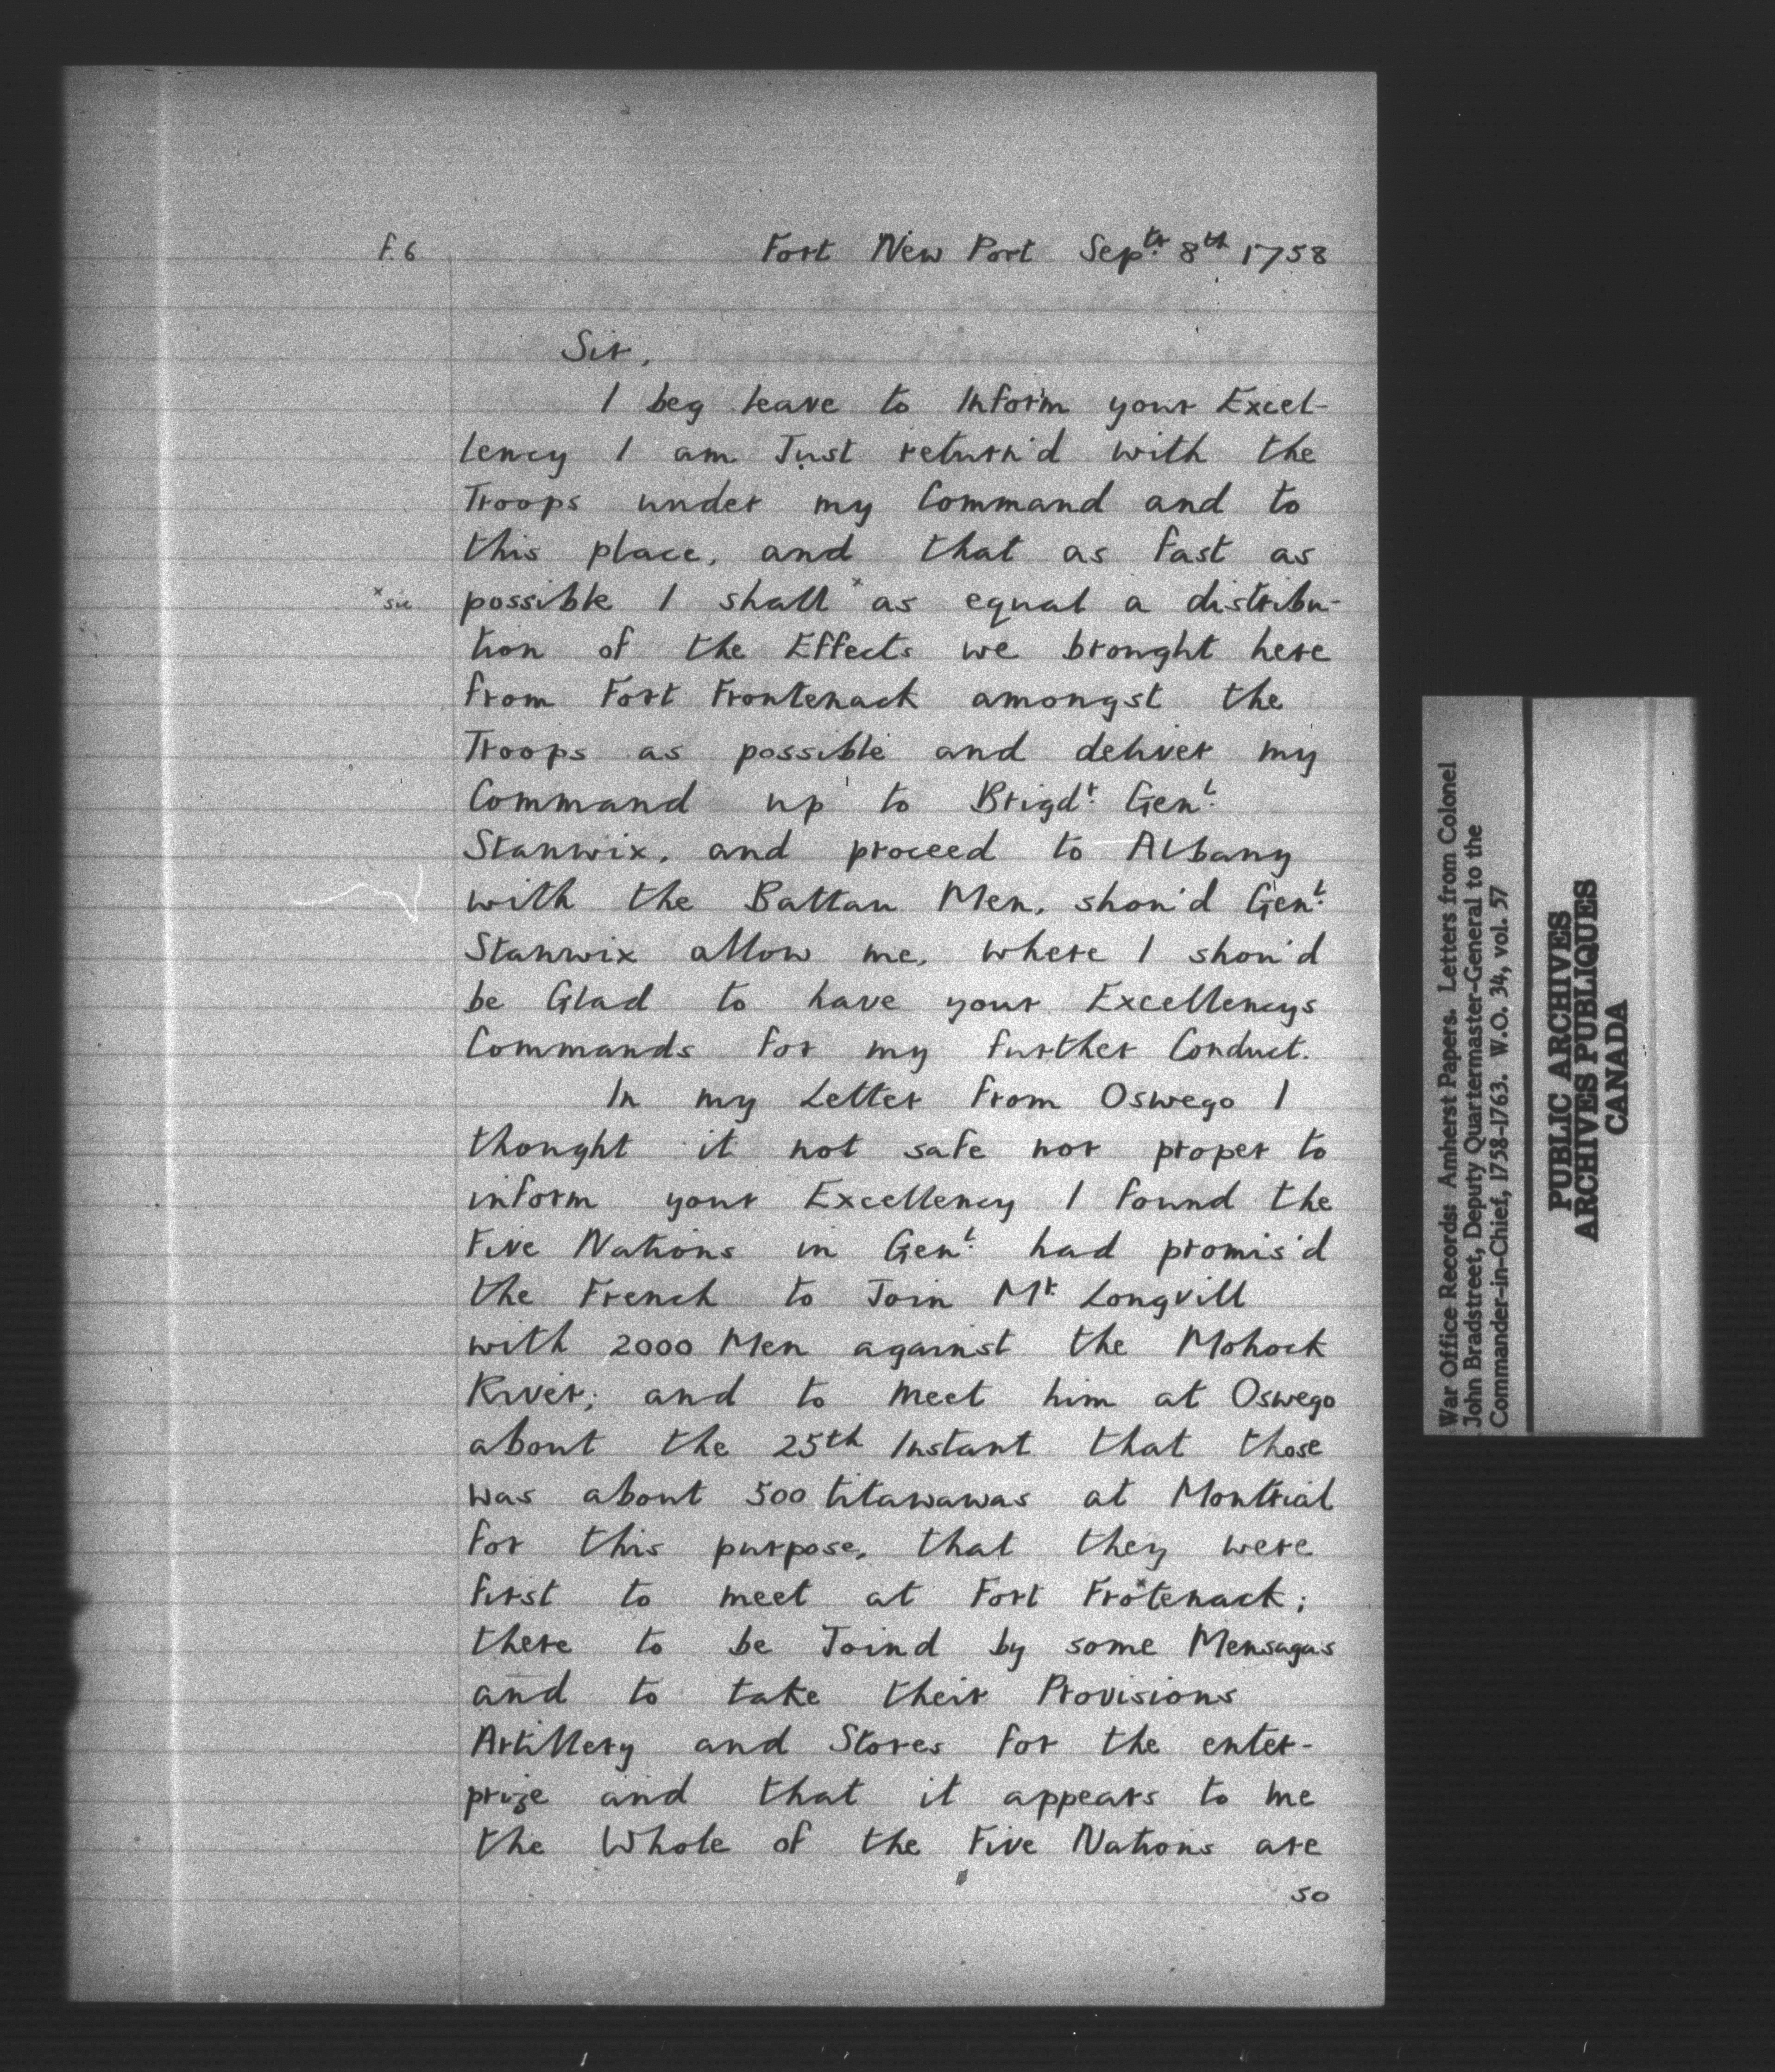 f. 6
Fort New Port Septr. 8th 1758
Sir,
I beg leave to Inform your Excel-
lency I am Just return'd with the
Troops under my Command and to
this place, and that as fast as
*sic possible I shall * as equal a distribu-
tion of the Effects we brought here
from Fort Frontenack amongst the
Troops as possible and deliver my
Command up to Brigdr. Genl.
Stanwix, and proceed to Albany
with the Battau Men, shou'd Genl.
Stanwix allow me, where I shou'd
be Glad to have your Excellencys
Commands for my further Conduct.
In my Letter from Oswego I
thought it not safe nor proper to
inform your Excellency I found the
Five Nations in Genl. had promis'd
the French to Join Mr Longvill
with 2000 Men against the Mohock
River; and to meet him at Oswego
about the 25th Instant that those
was about 500 titawawas at Montrial
for this purpose, that they were
first to meet at Fort Frotenack;
there to be Joind by some Mensagas
and to take their Provisions
Artillery and Stores for the enter-
prize and that it appears to me
the Whole of the Five Nations are
so
War Office Records: Amherst Papers. Letters from Colonel
John Bradstreet, Deputy Quartermaster-General to the
Commander-in-Chief, 1758-1763. W.O. 34, vol. 57
PUBLIC ARCHIVES
ARCHIVES PUBLIQUES
CANADA